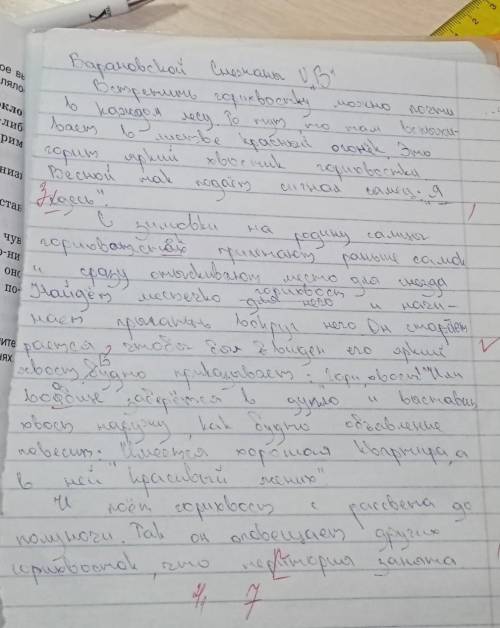 Барановской Снежаны V "В"
Встретить горихвостку можно почти
в каждом лесу. То тут, то там вспыхи-
вает в листве красный огонёк. Это
горит яркий хвостик горихвостки
Весной так подаёт сигнал самец: "Я
Здесь".
С зимовки на родину самцы
прилетают раньше самок
и сразу отыскивают место для гнезда
Найдёт местечко горихвост для него и начи-
нает прыгать вокруг него Он старает
растся, чтобы был виден его яркий
хвост, будто приказывает: "Гори, хвост!" Или
вообще заберётся в дупло и выставит
хвост наружу, как будто объявление
повесит: "Имеется хорошая квартира, а
в ней красивый жених"
И поёт горихвост с рассвета до
полуночи. Так он оповещает других
горихвосток, что территория занята
4/ 7